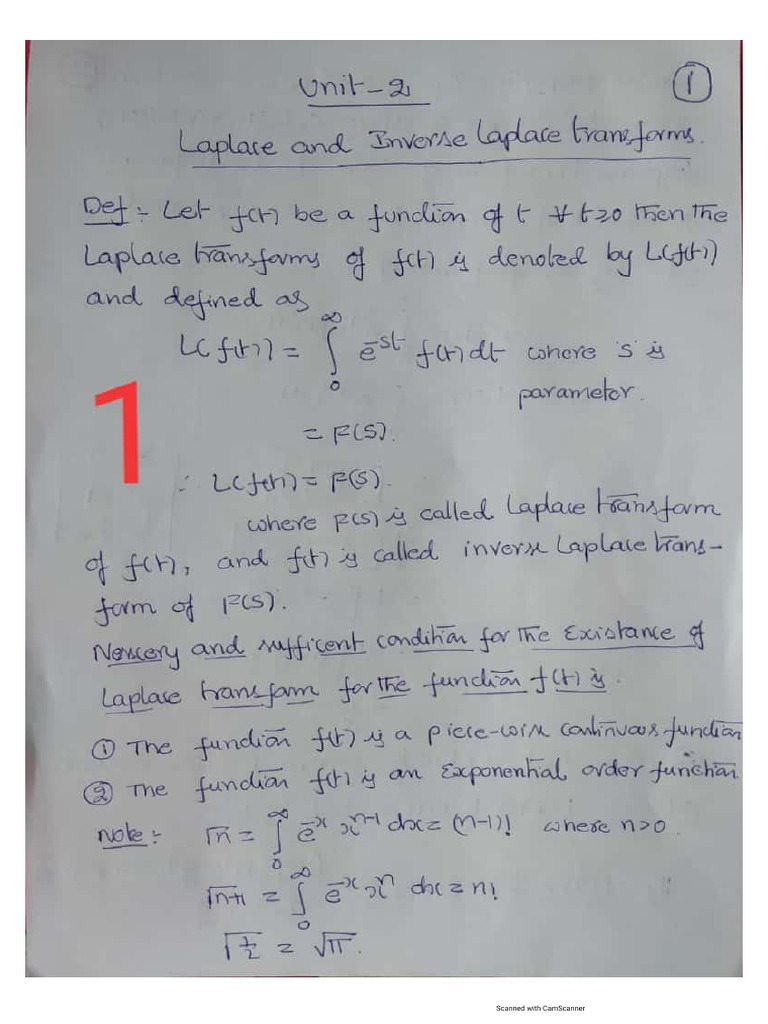 Unit-2
1
Laplace and Inverse Laplace transforms.
Def:- Let f(t) be a function of t ∀ t≥0 then the
Laplace transforms of f(t) is denoted by L(f(t))
and defined as
L(f(t)) = ∫₀^∞ e^-st f(t) dt where 's' is
parameter.
= F(S).
∴ L(f(t)) = F(S).
1
where F(S) is called Laplace transform
of f(t), and f(t) is called inverse Laplace trans-
form of F(S).
and sufficent condition for the Existance of
Laplace transform for the function f(t) is.
① The function f(t) is a piece-wise continuous function
② The function f(t) is an Exponential order function
Note:- Γn = ∫₀^∞ e^-x x^n-1 dx = (n-1)! where n>0.
Γn+1 = ∫₀^∞ e^-x x^n dx = n!
Γ1/2 = √π.
Scanned with CamScanner